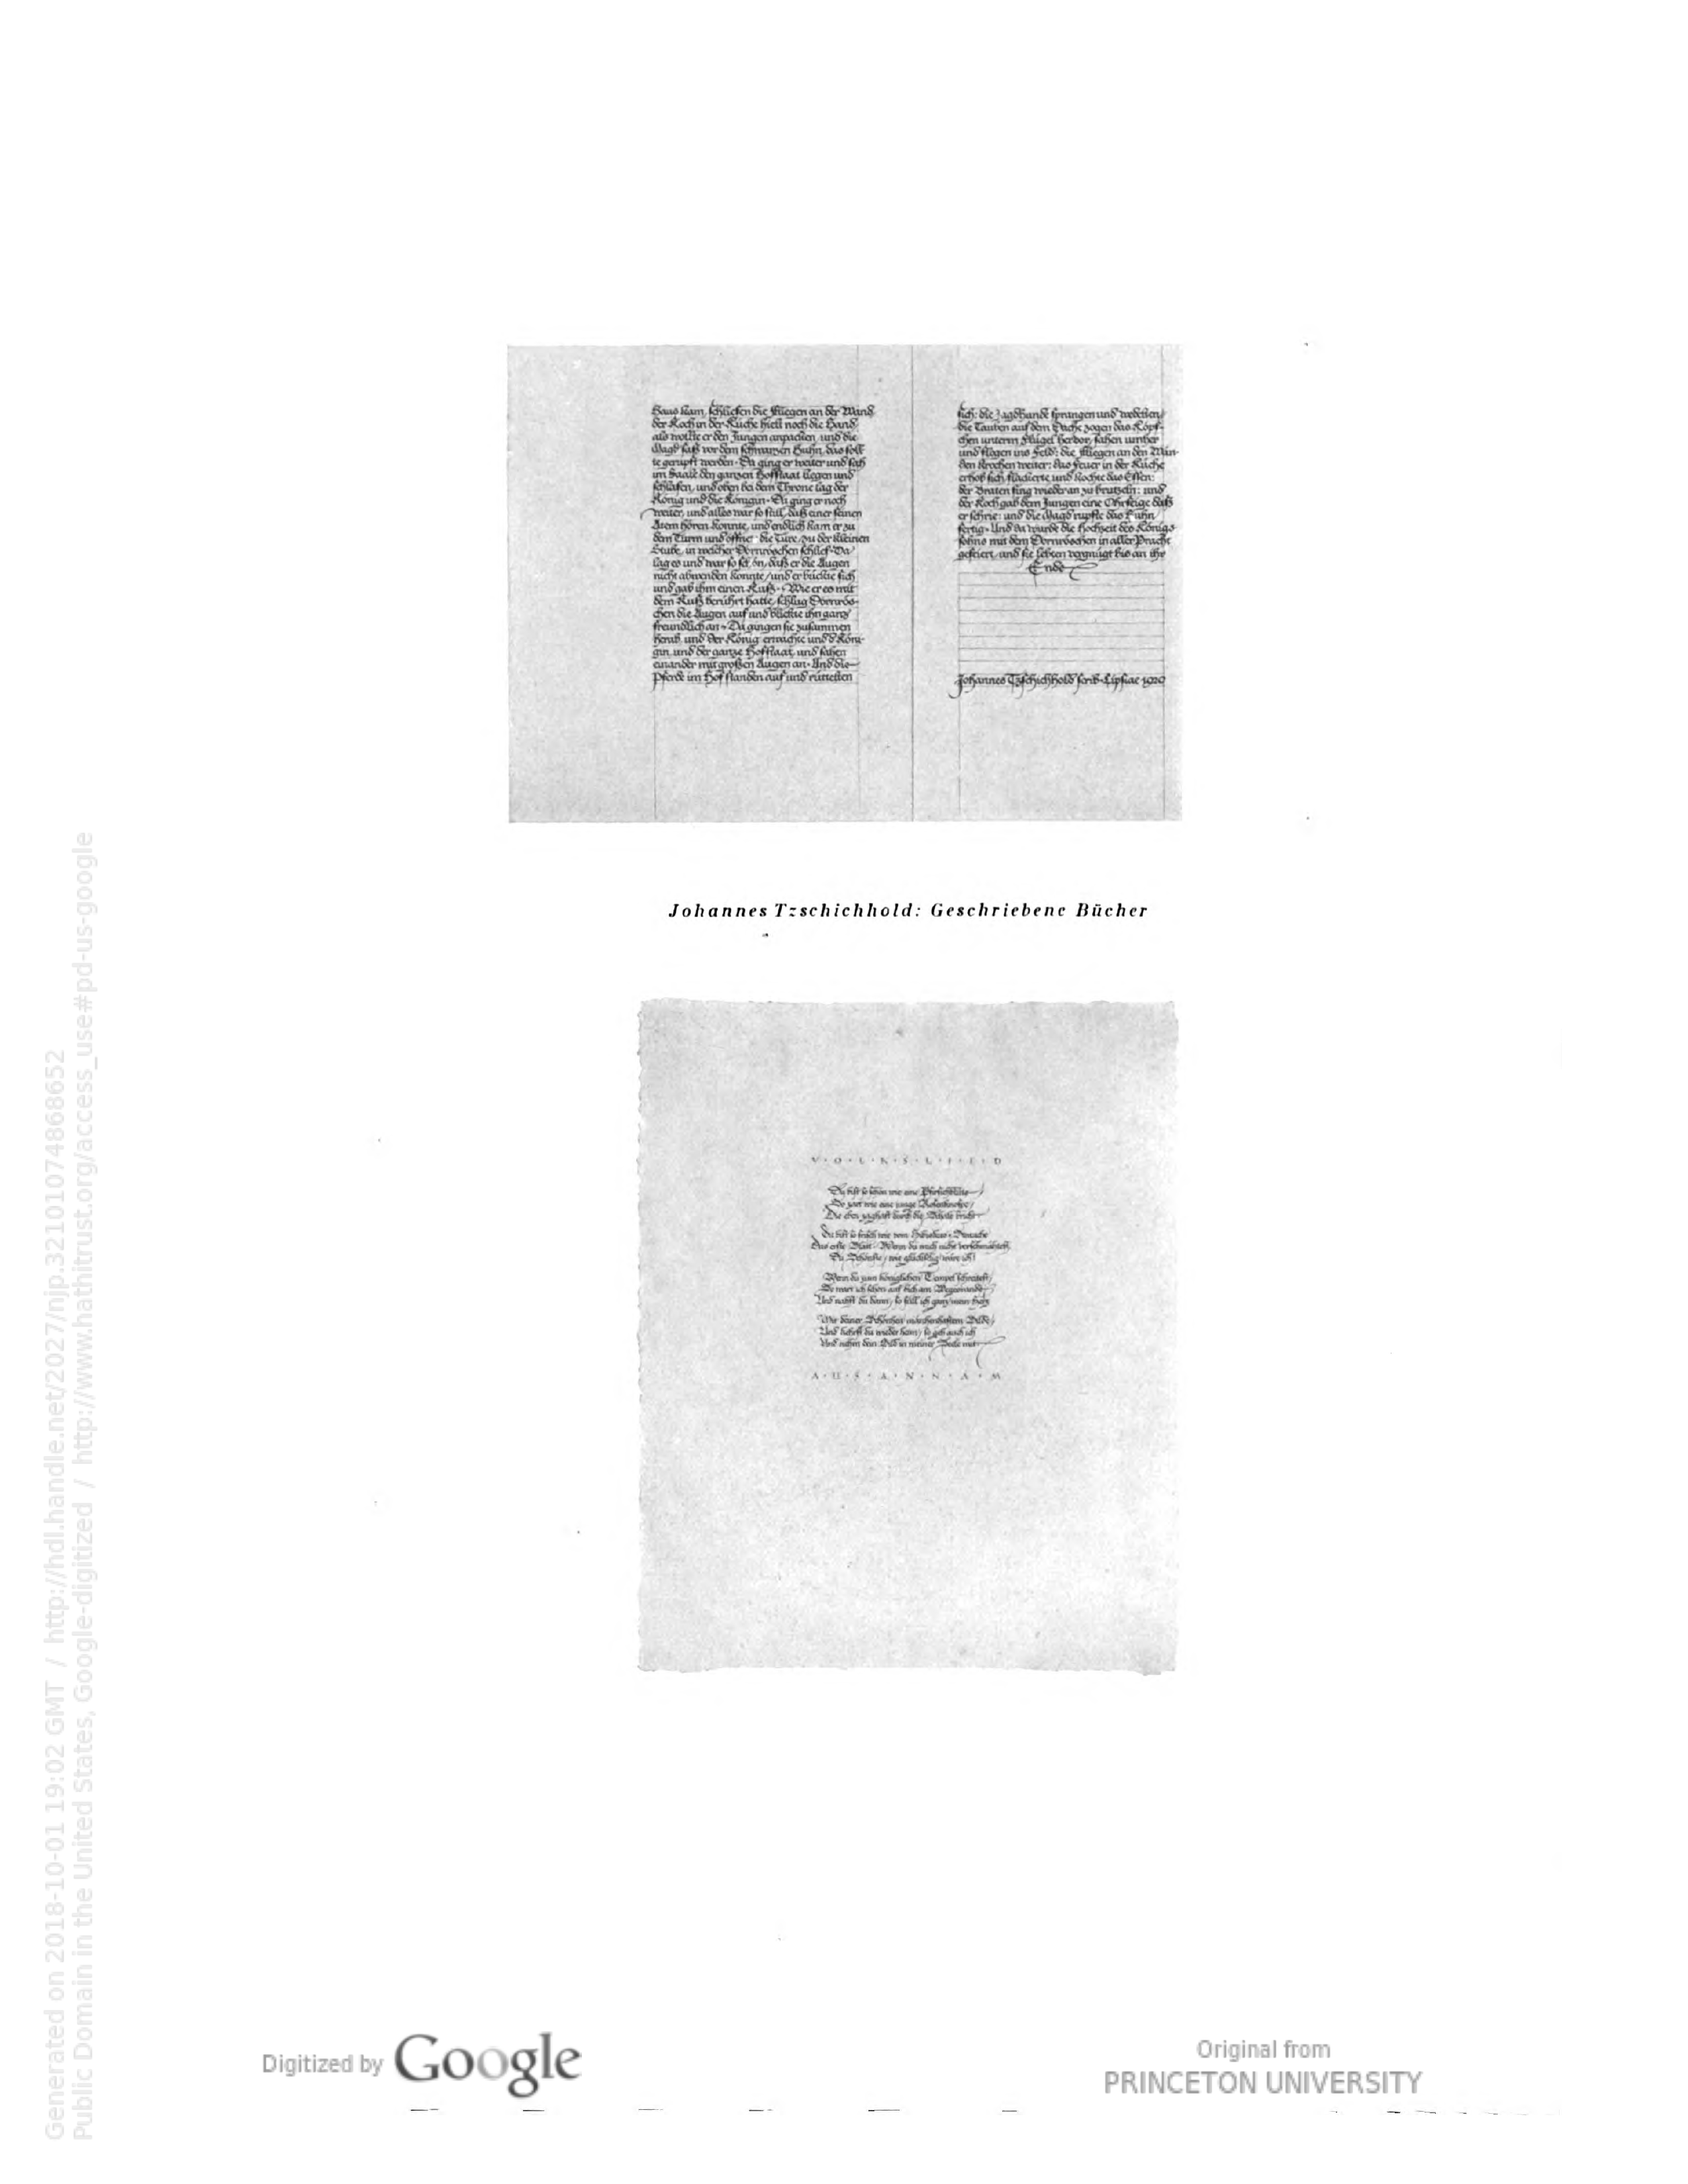 Haus kam, schliefen die Fliegen an der Wand
der Koch in der Küche hielt noch die Hand
als wollte er den Jungen anpacken, und die
Magd saß vor dem schwarzen Huhn, das soll
te gerupft werden · Da ging er weiter und sah
im Saale den ganzen Hofstaat liegen und
schlafen, und oben bei dem Throne lag der
König und die Königin · Da ging er noch
weiter, und alles war so still, daß einer seinen
Atem hören konnte, und endlich kam er zu
dem Turm und öffnet die Türe zu der kleinen
Stube, in welcher Dornröschen schlief · Da
lag es und war so schön, daß er die Augen
nicht abwenden konnte, und er bückte sich
und gab ihm einen Kuß · Wie er es mit
dem Kuß berührt hatte, schlug Dornrös-
chen die Augen auf und blickte ihn ganz
freundlich an · Da gingen sie zusammen
herab, und der König erwachte und d Köni-
gin und der ganze Hofstaat, und sahen
einander mit großen Augen an · Und die
Pferde im Hof standen auf und rüttelten
sich: die Jagdhunde sprangen und wedelten,
die Tauben auf dem Dache zogen das Köpf-
chen unterm Flügel hervor, sahen umher
und flogen ins Feld: die Fliegen an den Wän-
den krochen weiter: das Feuer in der Küche
erhob sich, flackerte und kochte das Essen:
der Braten fing wieder an zu brutzeln: und
der Koch gab dem Jungen eine Ohrfeige daß
er schrie: und die Magd rupfte das Huhn
fertig · Und da wurde die Hochzeit des Königs
sohns mit dem Dornröschen in aller Pracht
gefeiert, and sie lebten vergnügt bis an ihr
Ende
Johannes Tzschichhold scrib · Lipsiae 1920
Johannes Tzschichhold: Geschriebene Bücher
V · O · L · K · S · L · I · E · D
Du bist so schön wie eine Pfirsichblüte
So zart wie eine junge
Die eben zaghaft durch die bricht
Du bist so frisch wie vom
Das erste Blatt · Wenn du mich nicht verschmähtest,
Du Schönste, wie glückselig wäre ich!
Wenn du zum königlichen Tempel schreitest,
So wart ich schon auf dich am Wegesrande
Und nahst du dann, so füll ich ganz mein Herz
Mit deiner Schönheit märchenhaftem Bild,
Und kehrst du wieder heim, so geh auch ich
Und nehm dein Bild in meiner Seele mit
A · U · S · A · N · N · A · M
Digitized by Google
Original from
PRINCETON UNIVERSITY
Generated on 2018-10-01 19:02 GMT / http://hdl.handle.net/2027/njp.32101074868652
Public Domain in the United States, Google-digitized / http://www.hathitrust.org/access_use#pd-us-google